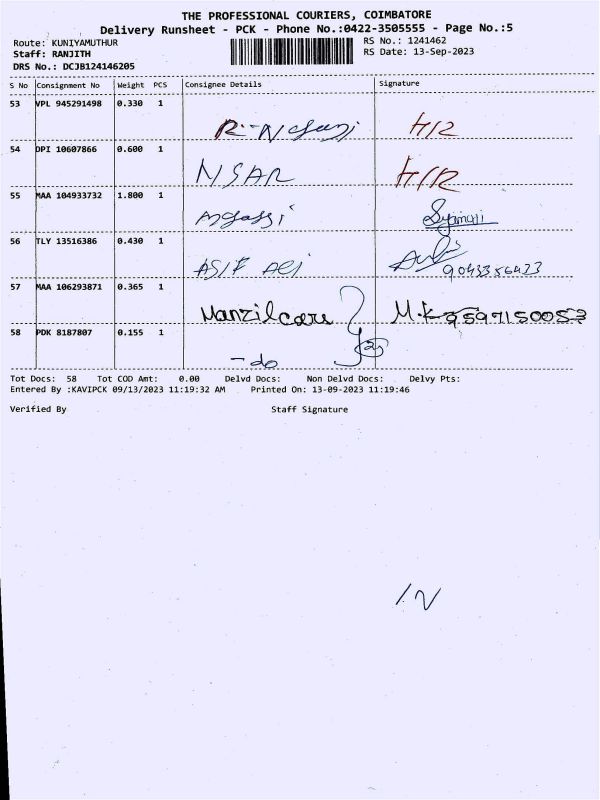 THE PROFESSIONAL COURIERS, COIMBATORE
Delivery Runsheet - PCK - Phone No.:0422-3505555 - Page No.:5
Route: KUNIYAMUTHUR RS No.: 1241462
Staff: RANJITH RS Date: 13-Sep-2023
DRS No.: DCJB124146205
S No Consignment No Weight PCS Consignee Details Signature
53 VPL 945291498 0.330 1
H/R
54 DPI 10607866 0.600 1
NSAR H/R
55 MAA 104933732 1.800 1
56 TLY 13516386 0.430 1
ASIF ALi
57 MAA 106293871 0.365 1
Manzilcare M.K 9597150053
58 PDK 8187807 0.155 1
- do
Tot Docs: 58 Tot COD Amt: 0.00 Delvd Docs: Non Delvd Docs: Delvy Pts:
Entered By :KAVIPCK 09/13/2023 11:19:32 AM Printed On: 13-09-2023 11:19:46
Verified By Staff Signature